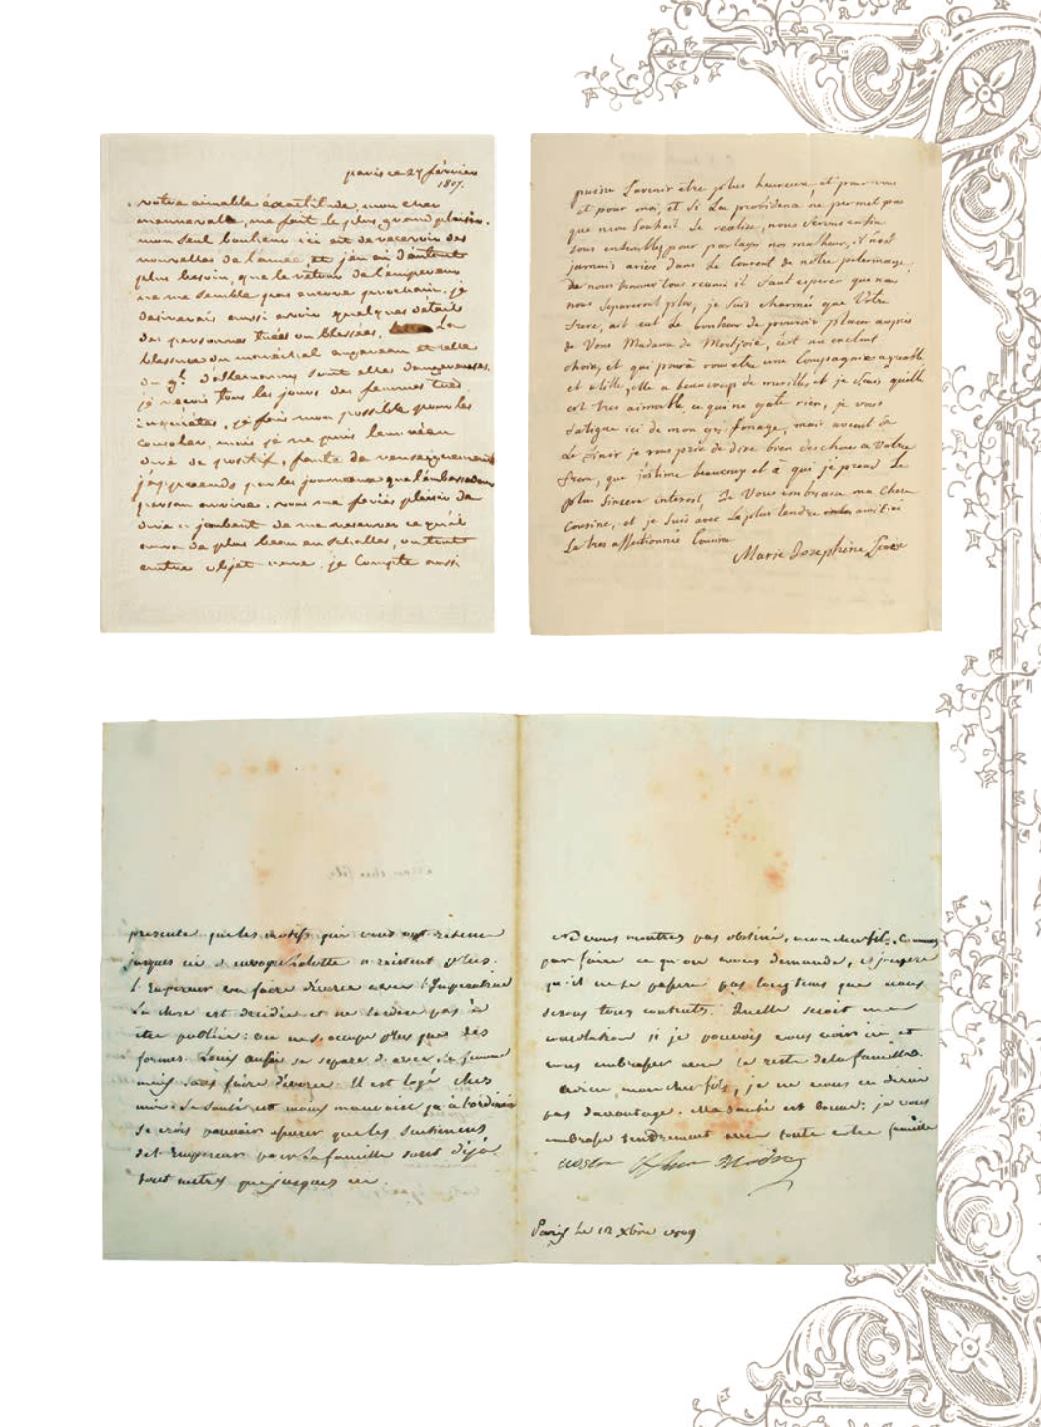 paris ce 27 février
1807.
votre aimable éxactitude, mon cher
menneval, me fait le plus grand plaisir.
mon seul bonheur ici est de recevoir des
nouvelles de l'armée et j'en ai d'autant
plus besoin, que le retour de l'empereur
ne me semble pas encore prochain. je
desirerais aussi avoir quelques détails
des personnes tuées ou blessées. La
blessure du maréchal augereau et celle
du gal. sont elles dangereuses.
je reçois tous les jours des femmes très
inquiétes, je fais mon possible pour les
consoler, mais je ne puis leur rien
dire de positif, faute de renseignements
j'apprends par les journeaux que l'ambassadeur
persan arrive. vous me feriés plaisir de
dire a jaubert de me reserver ce qu'il
aura de plus beau en schalles, ou toute
autre objet rare. je Compte aussi
puisse l'avenir être plus heureux, et pour vous
et pour moi, et si la providence ne permet pas
que mon souhait se realise, nous serons enfin
tous ensemble, pour partager nos malheur, il n'est
jamais arivé dans le Courent de notre pelerinage,
de nous trouver tous reunis il faut esperer que nous
nous separeront plus, je suis charmée que Votre
frere, ait eut le bonheur de pouvoir placer aupres
de Vous Madame de Montjoie, c'est un excelent
choix, et qui poura vous etre une Compagnie agreable
et utille, elle a beaucoup de merille, et je sais qu'elle
est tres aimable ce qui ne gate rien, je vous
fatigue ici de mon grifonage, mais avent de
le finir je vous prie de dire bien des chose a Votre
frere, que j'estime beaucoup et à qui je prend le
plus sincere interest, Je Vous embrasse ma chere
Cousine, et je suis avec la plus tendre amitié
La tres affectionnée Cousine
Marie Josephine Louise
presente que les motifs qui vous ont retenu
jusques ici a n'existent plus.
L'Empereur va faire divorce avec l'Impératrice
La chose est décidée et ne tardera pas à
être publiée: on ne s'occupe plus que des
formes. Louis aussi se separe d'avec sa femme
mais sans faire divorce. Il est logé chez
moi. Sa santé est moins mauvaise qu'à l'ordinaire
Je crois pouvoir assurer que les sentimens
de l'Empereur pour la famille sont déjà
tout autres que jusques ici.
Ne vous montrez pas obstiné, mon cher fils, Commencez
par faire ce qu'on vous demande, et j'espère
qu'il ne se passera pas longtems que nous
serons tous contents. Quelle seroit ma
consolation si je pouvois vous voir ici et
vous embrasser avec le reste de la famille.
Adieu, mon cher fils, je ne vous en dirai
pas davantage. Ma santé est bonne: je vous
embrasse tendrement avec toute votre famille
votre
Paris le 12 xbre 1809